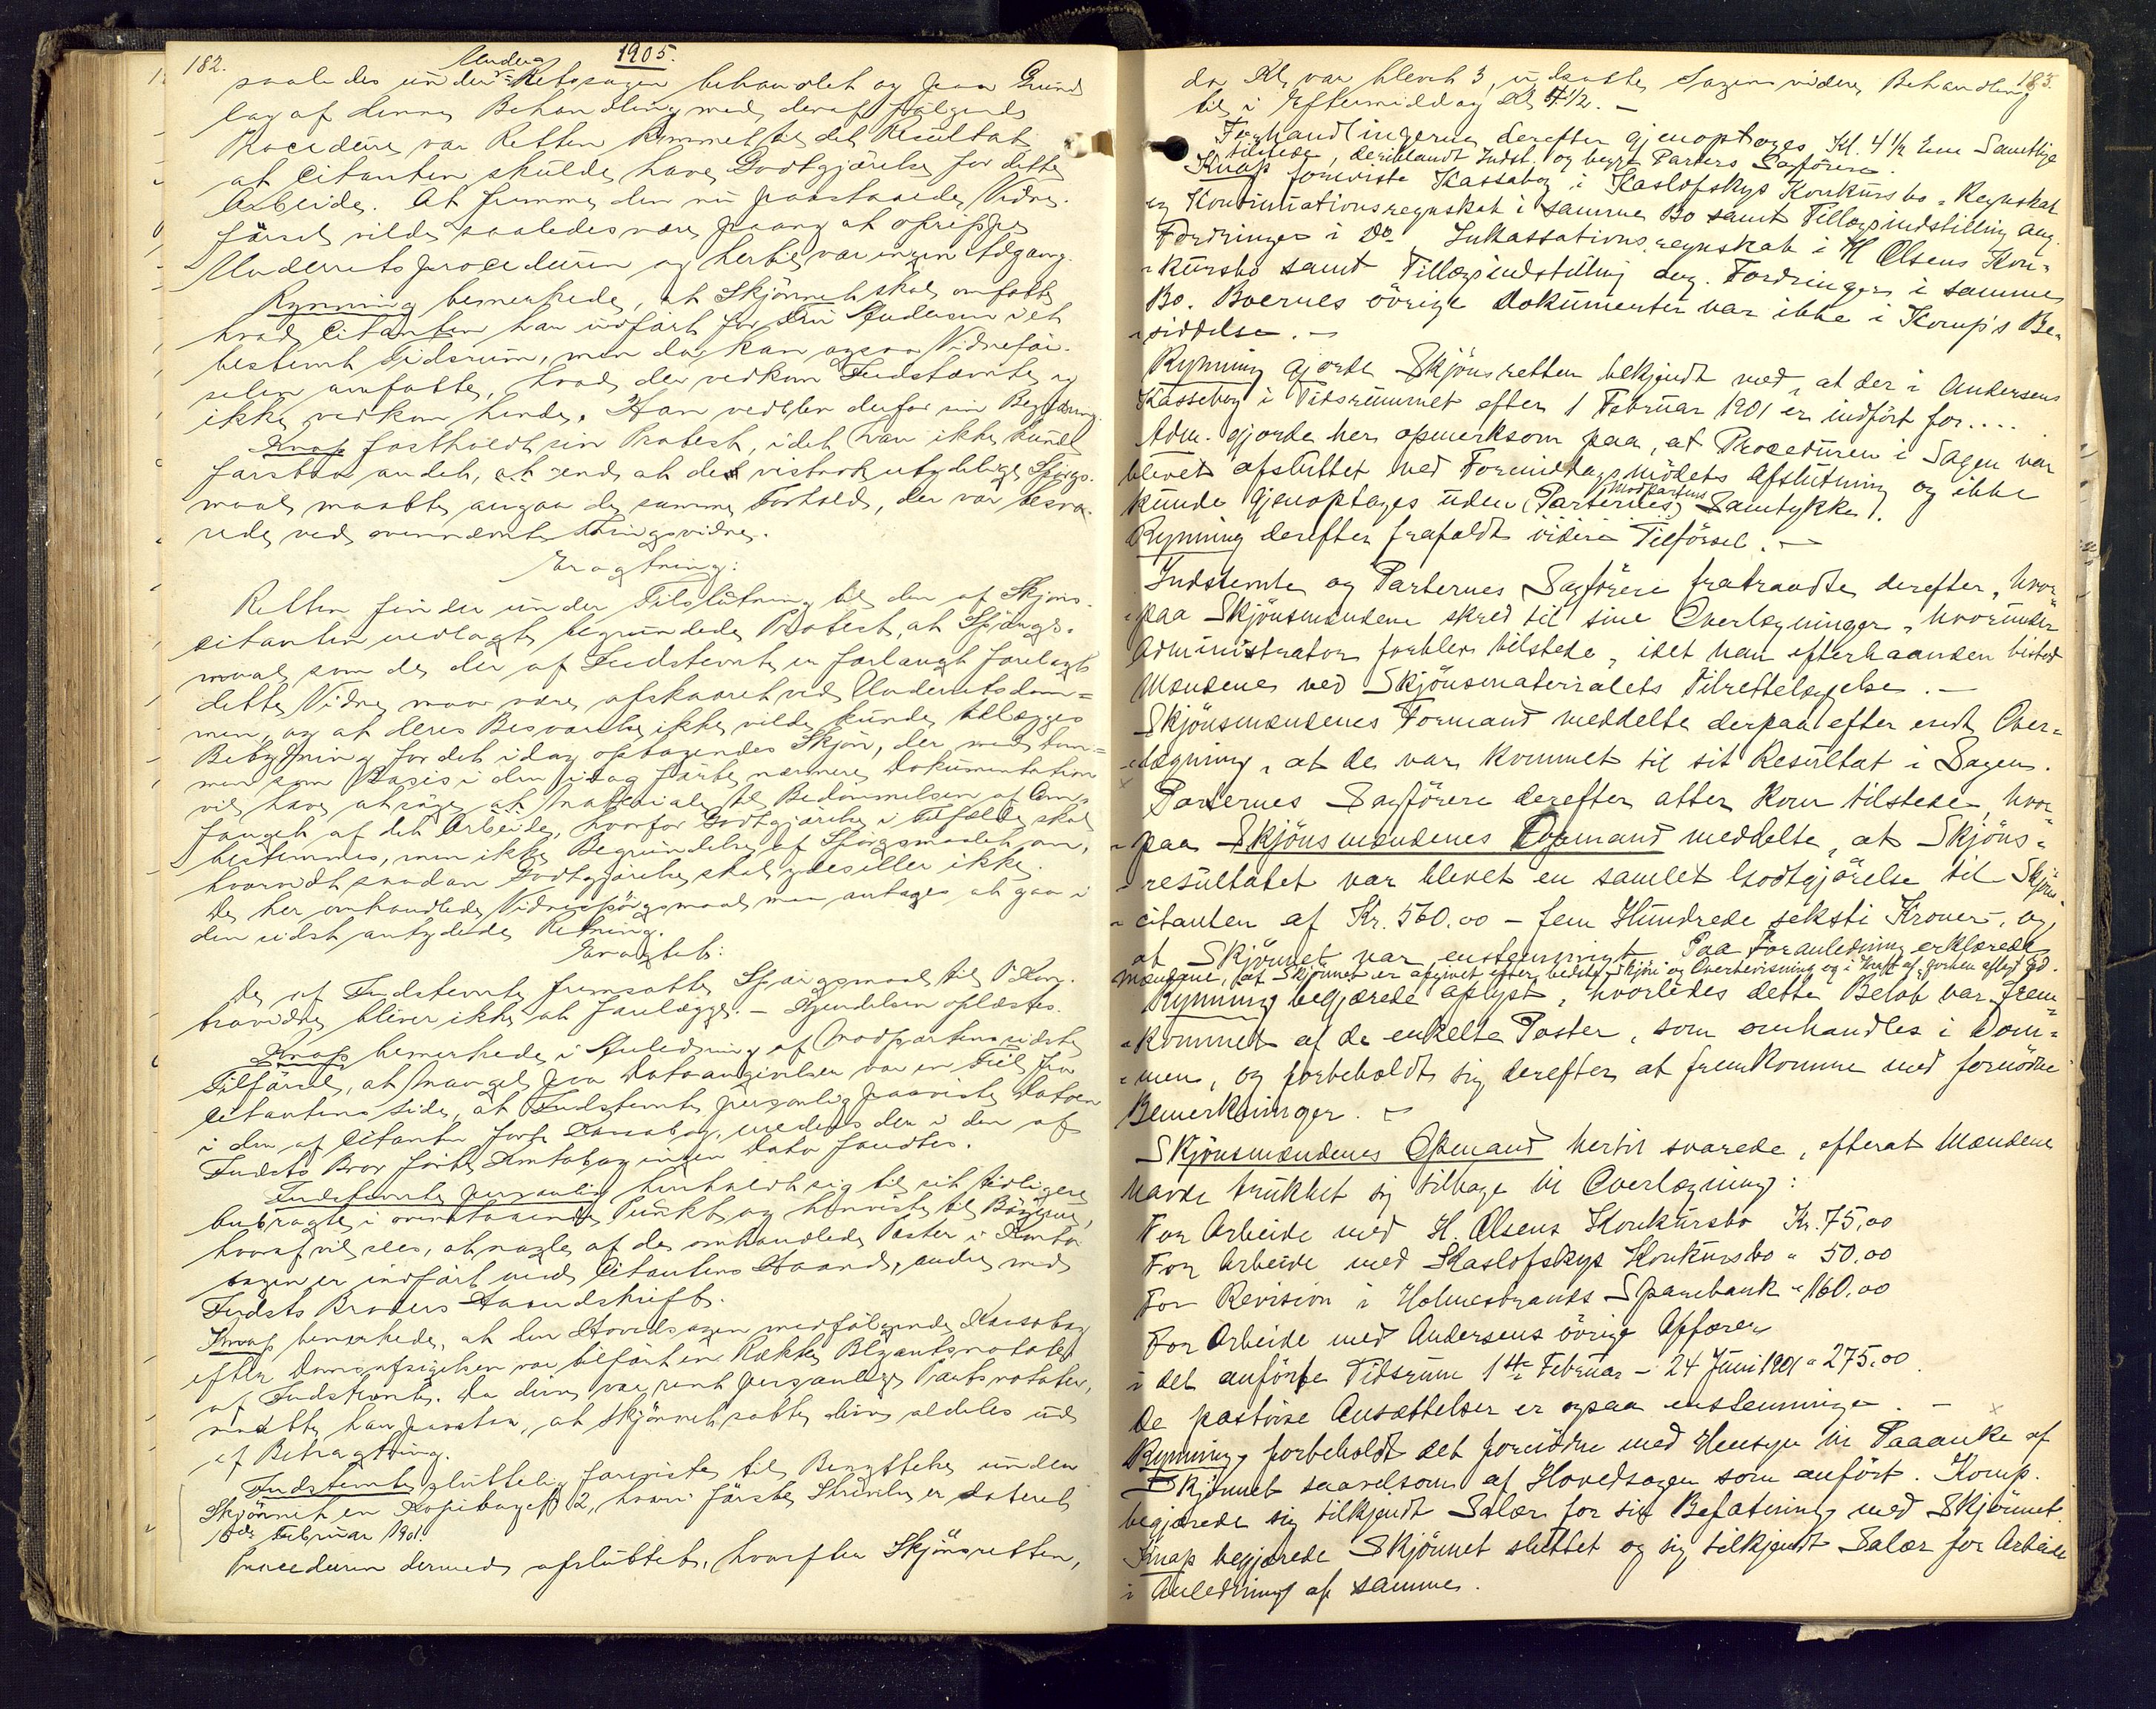 182.
1905.
saaledes under Underretssagen behandlet og paa Grund
lag af denne Behandling med deraf følgende
Procedure var Retten kommet til det Resultat
at Citanten skulde have Godtgjørelse for dette
Arbeide. At fremme den nu paastaaede Vidne-
førsel vilde saaledes være paany at oprippe
Underretsproceduren og hertil var ingen Adgang.
Rynning bemerkede, at Skjønnet skal omfatte
hvad Citanten har udført for Fru Andersen i et
bestemt Tidsrum, men da kan ogsaa Vidnefør-
selen omfatte, hvad der vedkom Indstævnte og
ikke vedkom hende. Han vedblev derfor sin Begjæring.
Knap fastholdt sin Protest, idet han ikke kunde
forstaa andet, end at de vistnok utydelige Spørgs-
maal maatte angaa de samme Forhold, der var besva-
rede ved ovennævnte Thingsvidne.
Eragtning:
Retten finder under Tilslutning til den af Skjøns-
citanten nedlagte begrundede Protest, at Spørgs-
maal som de der af Indstevnte er forlangt forelagt
dette Vidne maa være afskaaret ved Underretsdom-
men, og at deres Besvarelse ikke vilde kunde tillægges
Betydning for det idag optagendes Skjøn, der med Dom-
men som Basis i den idag førte nærmere Dokumentation
vil have at søge sit Materiale til Bedømmelsen af Om-
fanget af det Arbeide, hvorfor Godtgjørelse i Tilfælde skal
bestemmes, men ikke Begrundelse af Spørgsmaalet om,
hvorvidt saadan Godtgjørelse skal ydes eller ikke.
De her omhandlede Vidnespørgsmaal maa antages at gaa i
den sidst antydede Retning.
Eragtet:
De af Indstevnte fremsatte Spørgsmaal til Kon-
travidne bliver ikke at forelægge. – Kjendelsen oplæstes.
Knap bemerkede i Anledning af Modpartens sidste
Tilførsel, at Mangel paa Datoangivelser var en Feil fra
Citantens side, at Indstevnte personlig paaviste Datoen
i den af Citanten førte Kassabog, medens der i den af
Indsts Bror førte Kontobog ingen Dato fandtes.
Indstevnte personlig henholdt sig til sit tidligere
anbragte i ovenstaaende Punkt og henviste til Bøgerne,
hvoraf vil sees, at nogle af de omhandlede Poster i Konto
bogen er indført med Citantens Haand, andre med
Indsts Broders Haandskrift.
Knap bemerkede, at den Hovedsagen medfølgende Kassabog
efter Domsafsigelsen var tilført en Række Blyantsnotater
af Indstevnte. Da disse var rent personlige Partsnotater,
maatte han paastaa, at Skjønnet satte disse aldeles ud
af Betragtning.
Indstevnte sluttelig foreviste til Benyttelse under
Skjønnet en Kopibog No 2, hvori første Skrivelse er dateret
18de Februar 1901.
Proceduren dermed afsluttet, hvorefter Skjønsretten,
183.
da Kl. var blevet 3, udsatte Sagens videre Behandling
til i Eftermiddag Kl 4 1/2. –
Forhandlingerne derefter gjenoptoges Kl. 4 1/2 Em Samtlige
tilstede, deriblandt Indst. og begge Parters Sagførere.
Knap foreviste Kassabog i Kaslofskys Konkursbo, Regnskab
og Kontinuationsregnskab i samme Bo samt Tillægsindstilling ang.
Fordringer i Do, Inkassationsregnskab i H Olsens Kon-
kursbo samt Tillægsindstilling ang. Fordringer i samme
Bo. Boernes øvrige Dokumenter var ikke i Komp's Be-
siddelse. –
Rynning gjorde Skjønsretten bekjendt med, at der i Andersens
Kassebog i Tidsrummet efter 1 Februar 1901 er indført for....
Adm. gjorde her opmerksom paa, at Proceduren i Sagen var
blevet afsluttet ved Formiddagsmødets Afslutning og ikke
kunde gjenoptages uden (Parternes) Modpartens Samtykke.
Rynning derefter frafaldt videre Tilførsel. –
Indstevnte og Parternes Sagførere fratraadte derefter, hvor-
paa Skjønsmændene skred til sine Overlægninger, hvorunder
Administrator forblev tilstede, idet han efterhaanden bistod
Mændene ved Skjønsmaterialets Tilrettelæggelse. –
Skjønsmændenes Formand meddelte derpaa efter endt Over-
lægning, at de var kommet til sit Resultat i Sagen.
Parternes Sagførere derefter atter kom tilstede, hvor-
paa Skjønsmændenes Opmand meddelte, at Skjøns-
resultatet var blevet en samlet Godtgjørelse til Skjøns
citanten af Kr. 560.00 – fem Hundrede seksti Kroner –, og
at Skjønnet var enstemmigt. Paa Foranledning erklærede
Mændene, at Skjønnet er afgivet efter bedste Skjøn og Overbevisning og i Kraft af forhen aflagt Ed.
Rynning begjærede oplyst, hvorledes dette Beløb var frem-
kommet af de enkelte Poster, som omhandles i Dom-
men, og forbeholdt sig derefter at fremkomme med fornødne
Bemerkninger. –
Skjønsmændenes Opmand hertil svarede, efterat Mændene
havde trukket sig tilbage til Overlægning:
For Arbeide med H. Olsens Konkursbo Kr. 75,00
For Arbeide med Kaslofskys Konkursbo " 50.00
For Revision i Holmestrands Sparebank " 160.00
For Arbeide med Andersens øvrige Affærer
i det anførte Tidsrum 1ste Februar – 24 Juni 1901 " 275.00.
De passive Ansættelser er ogsaa enstemmige. –
Rynning forbeholdt det fornødne med Hensyn til Paaanke af
Skjønnet saavelsom af Hovedsagen som anført. Komp.
begjærede sig tilkjendt Salær for sin Befatning med Skjønnet.
Knap begjærede Skjønnet sluttet og sig tilkjendt Salær for Arbeide
i Anledning af samme.